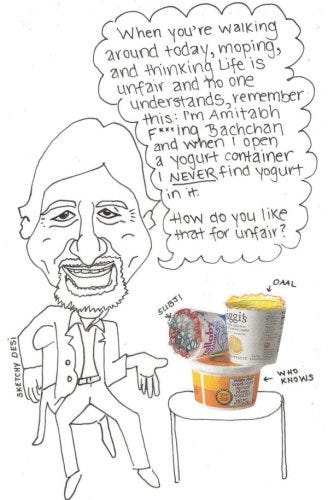 When you're walking
around today, moping,
and thinking Life is
unfair and no one
understands, remember
this: I'm Amitabh
F***ing Bachchan
and when I open
a yogurt container
I NEVER find yogurt
in it.
How do you like
that for unfair?
DAAL
SUBJI
WHO
KNOWS
SKETCHY DESI